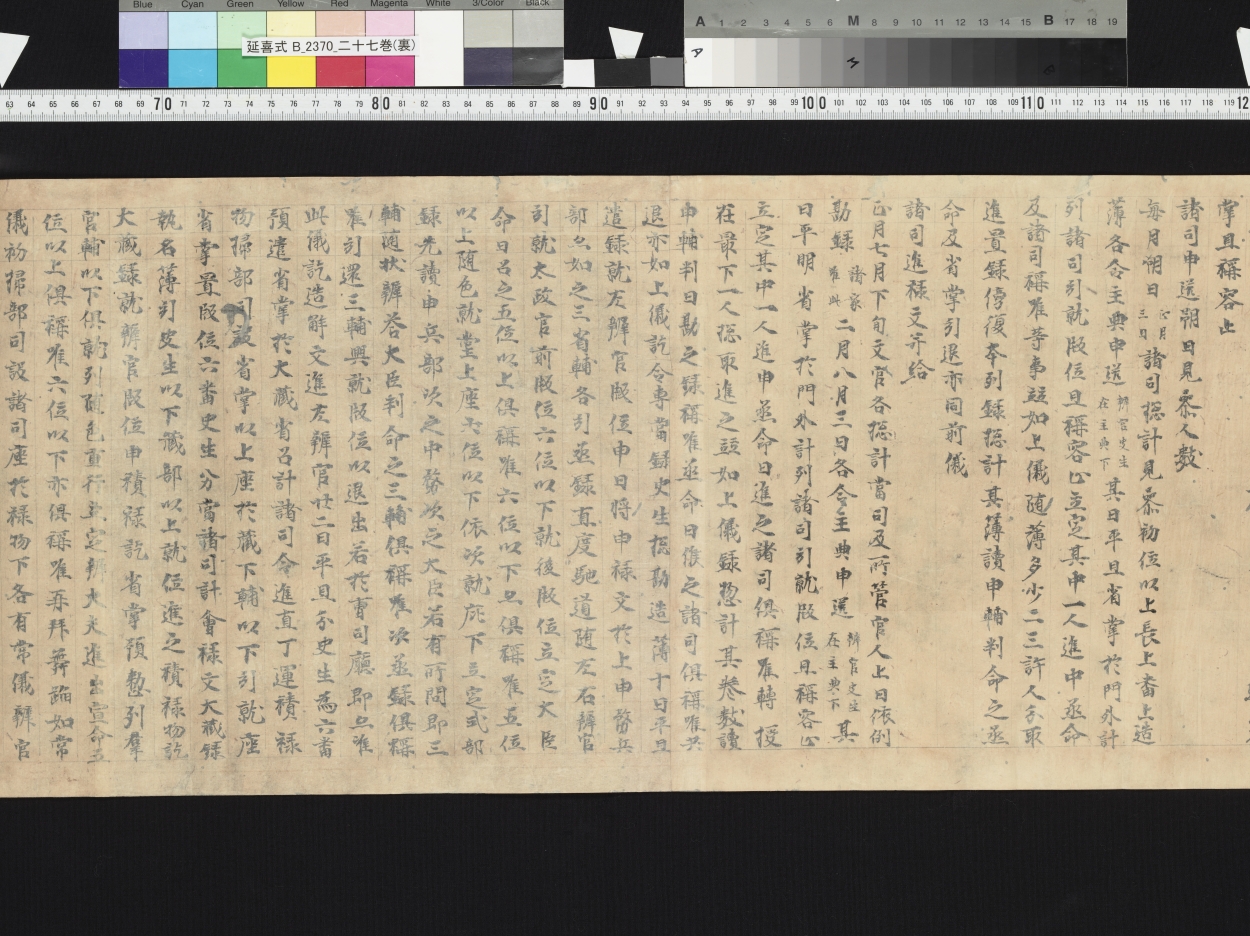 Blue Cyan Green Yellow Red Magenta White 3/Color Black
延喜式 B_2370_二十七巻(裏)
A 1 2 3 4 5 6 M 8 9 10 11 12 13 14 15 B 17 18 19
63 64 65 66 67 68 69 70 71 72 73 74 75 76 77 78 79 80 81 82 83 84 85 86 87 88 89 90 91 92 93 94 95 96 97 98 99 100 101 102 103 104 105 106 107 108 109 110 111 112 113 114 115 116 117 118 119 12
掌且稱容止
諸司申送朔日見参人数
毎月朔日 正月三日 諸司惣計見参初位以上長上番上造
薄各令主典申送 辨官史生在主典下 其日平旦省掌於門外計
列諸司引就版位且稱容止立定其中一人進申丞命
及諸司稱唯等事並如上儀随薄多少二三許人分取
進置録傍復本列録惣計其薄讀申輔判命之丞
命及省掌引退亦同前儀
諸司進禄文并給
正月七月下旬文官各惣計當司及所管官人上日依例
勘録 諸家准此 二月八月三日各令主典申送 辨官史生在主典下 其
日平明省掌於門外計列諸司引就版位且稱容止
立定其中一人進申丞命曰進之諸司倶稱唯轉授
在最下一人惣取進之並如上儀録惣計其巻数讀
申輔判曰勘之録稱唯丞命曰候之諸司倶稱唯共
退亦如上儀訖令専當録史生惣勘造薄十日平旦
遣録就左辨官版位申曰将申禄文於上申務兵
部亦如之三省輔各引丞録直度馳道随左右辨官
引就太政官前版位六位以下就後版位立定大臣
命曰召之五位以上倶稱唯六位以下亦倶稱唯五位
以上随色就堂上座六位以下依次就庇下立定式部
録先讀申兵部次之中務次之大臣若有所問即三
輔随状辨答大臣判命之三輔倶稱唯次丞録倶稱
唯引還三輔興就版位以退出若於曹司廳即亦准
此儀訖造解文進左辨官廿二日平旦分史生為六番
預遣省掌於大蔵省召計諸司令進直丁運積禄
物掃部司設省掌以上座於蔵下輔以下引就座
省掌置版位六番史生分當諸司計會禄文大蔵録
執名薄引史生以下蔵部以上就位進之積禄物訖
大蔵録就辨官版位申積禄訖省掌預整列群
官輔以下倶就列随色重行立定辨大夫進出宣命五
位以上倶稱唯六位以下亦倶稱唯再拜舞踏如常
儀初掃部司設諸司座於禄物下各有常儀辨官